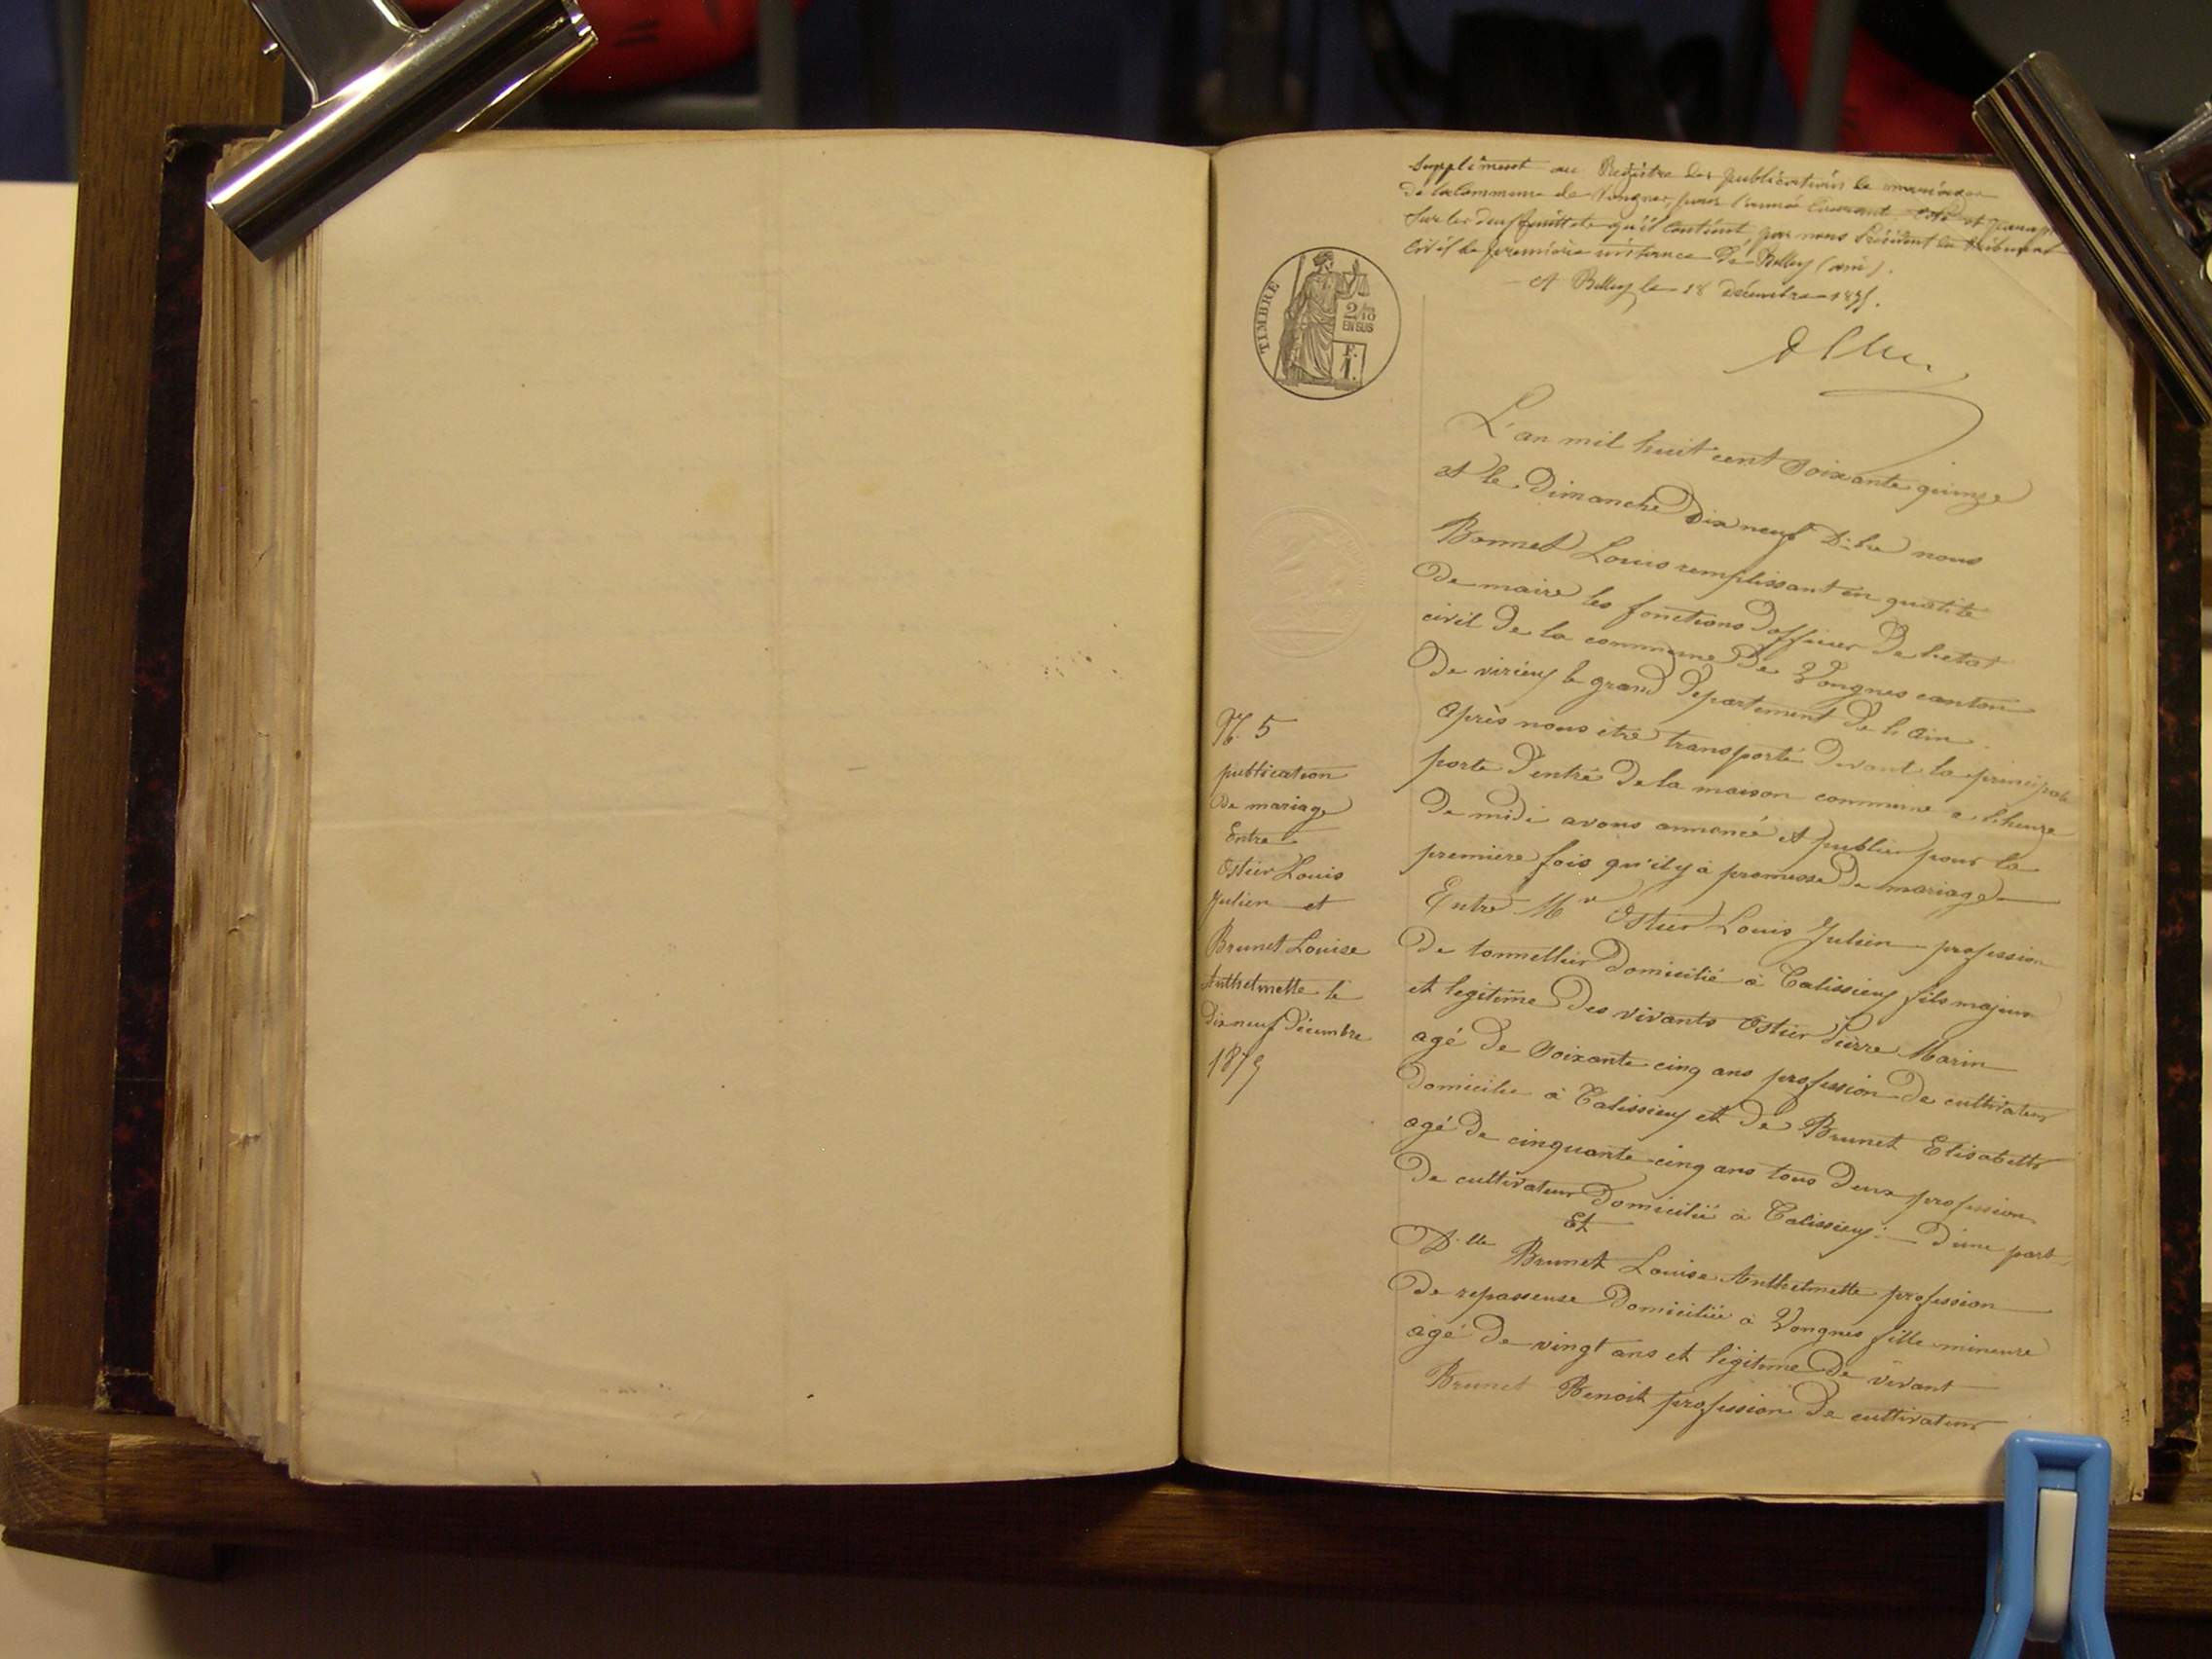 Supplément au Registre des publications de mariages
de la Commune de Vongnes, pour l'année Courante, Coté et paraphé
Sur les deux feuillets qu'il contient par nous Président du tribunal
Civil de première instance de Belley (ain).
A Belley le 18 décembre 1875.
TIMBRE
2/10
EN SUS
F.
1.
L'an mil huit cent Soixante quinze
et le Dimanche Dix neuf Xbre nous
Bonnet Louis remplissant en qualité
De maire les fonctions D'officier De l'etat
civil De la commune De Vongnes canton
De virieu le grand Departement De l'ain
Après nous être transporté Devant la principale
porte D'entré De la maison commune a l'heure
De midi avons annoncé et publier pour la
première fois qu'il y à promesse De mariage
Entre Mr Ostier Louis Julien profession
De tonnellier Domicilié à Talissieu fils majeur
et legitime Des vivants Ostier Pierre Marin
agé De Soixante cinq ans profession De cultivateur
Domicilie à Talissieu et De Brunet Elisabeth
agé De cinquante cinq ans tous Deux profession
De cultivateur Domicilié à Talissieu D'une part
Et
Dlle Brunet Louise Anthelmette profession
De repasseuse Domiciliée à Vongnes fille mineure
agé De vingt ans et légitime De vivant
Brunet Benoit profession De cultivateur
N. 5
publication
De mariage
Entre
Ostier Louis
Julien et
Brunet Louise
Anthelmette le
Dix neuf Décembre
1875